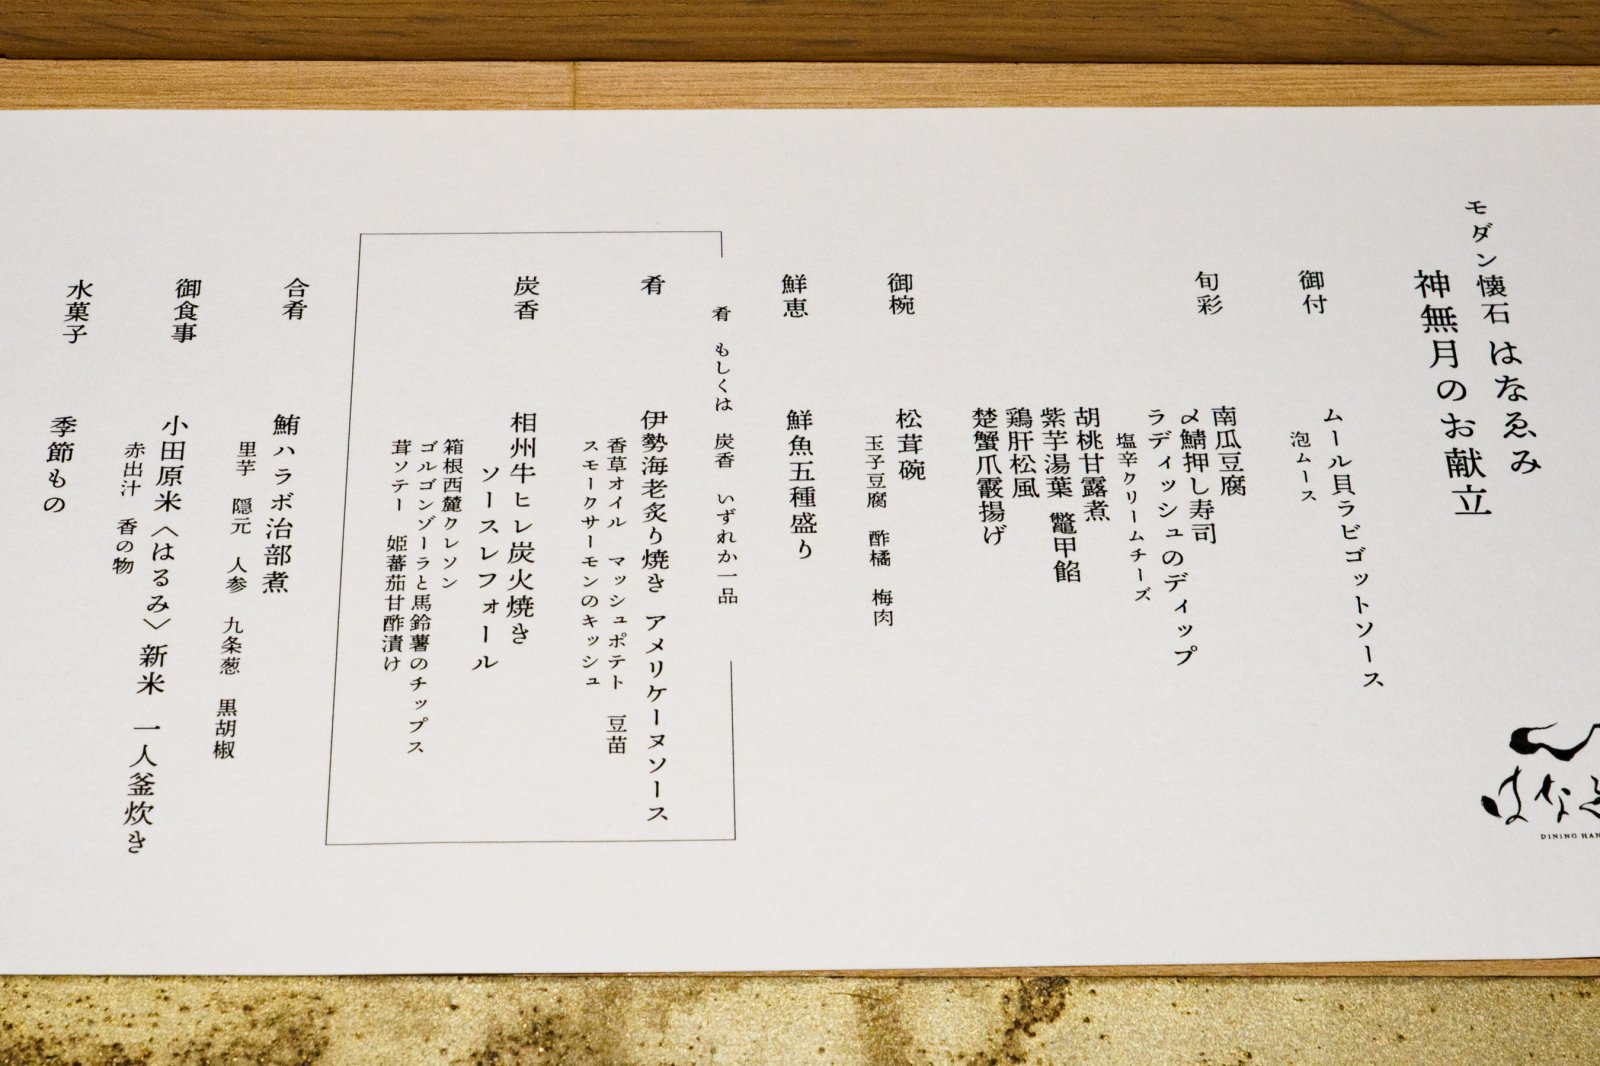 モダン懐石 はなゑみ
神無月のお献立
御付
ムール貝ラビゴットソース
泡ムース
旬彩
南瓜豆腐
〆鯖押し寿司
ラディッシュのディップ
塩辛クリームチーズ
胡桃甘露煮
紫芋湯葉 鼈甲餡
鶏肝松風
楚蟹爪霰揚げ
御椀
松茸碗
玉子豆腐 酢橘 梅肉
鮮恵
鮮魚五種盛り
肴 もしくは 炭香 いずれか一品
肴
伊勢海老炙り焼き アメリケーヌソース
香草オイル マッシュポテト 豆苗
スモークサーモンのキッシュ
炭香
相州牛ヒレ炭火焼き
ソースレフォール
箱根西麓クレソン
ゴルゴンゾーラと馬鈴薯のチップス
茸ソテー 姫蕃茄甘酢漬け
合肴
鮪ハラボ治部煮
里芋 隠元 人参 九条葱 黒胡椒
御食事
小田原米〈はるみ〉新米 一人釜炊き
赤出汁 香の物
水菓子
季節もの
はなゑ
DINING HAN